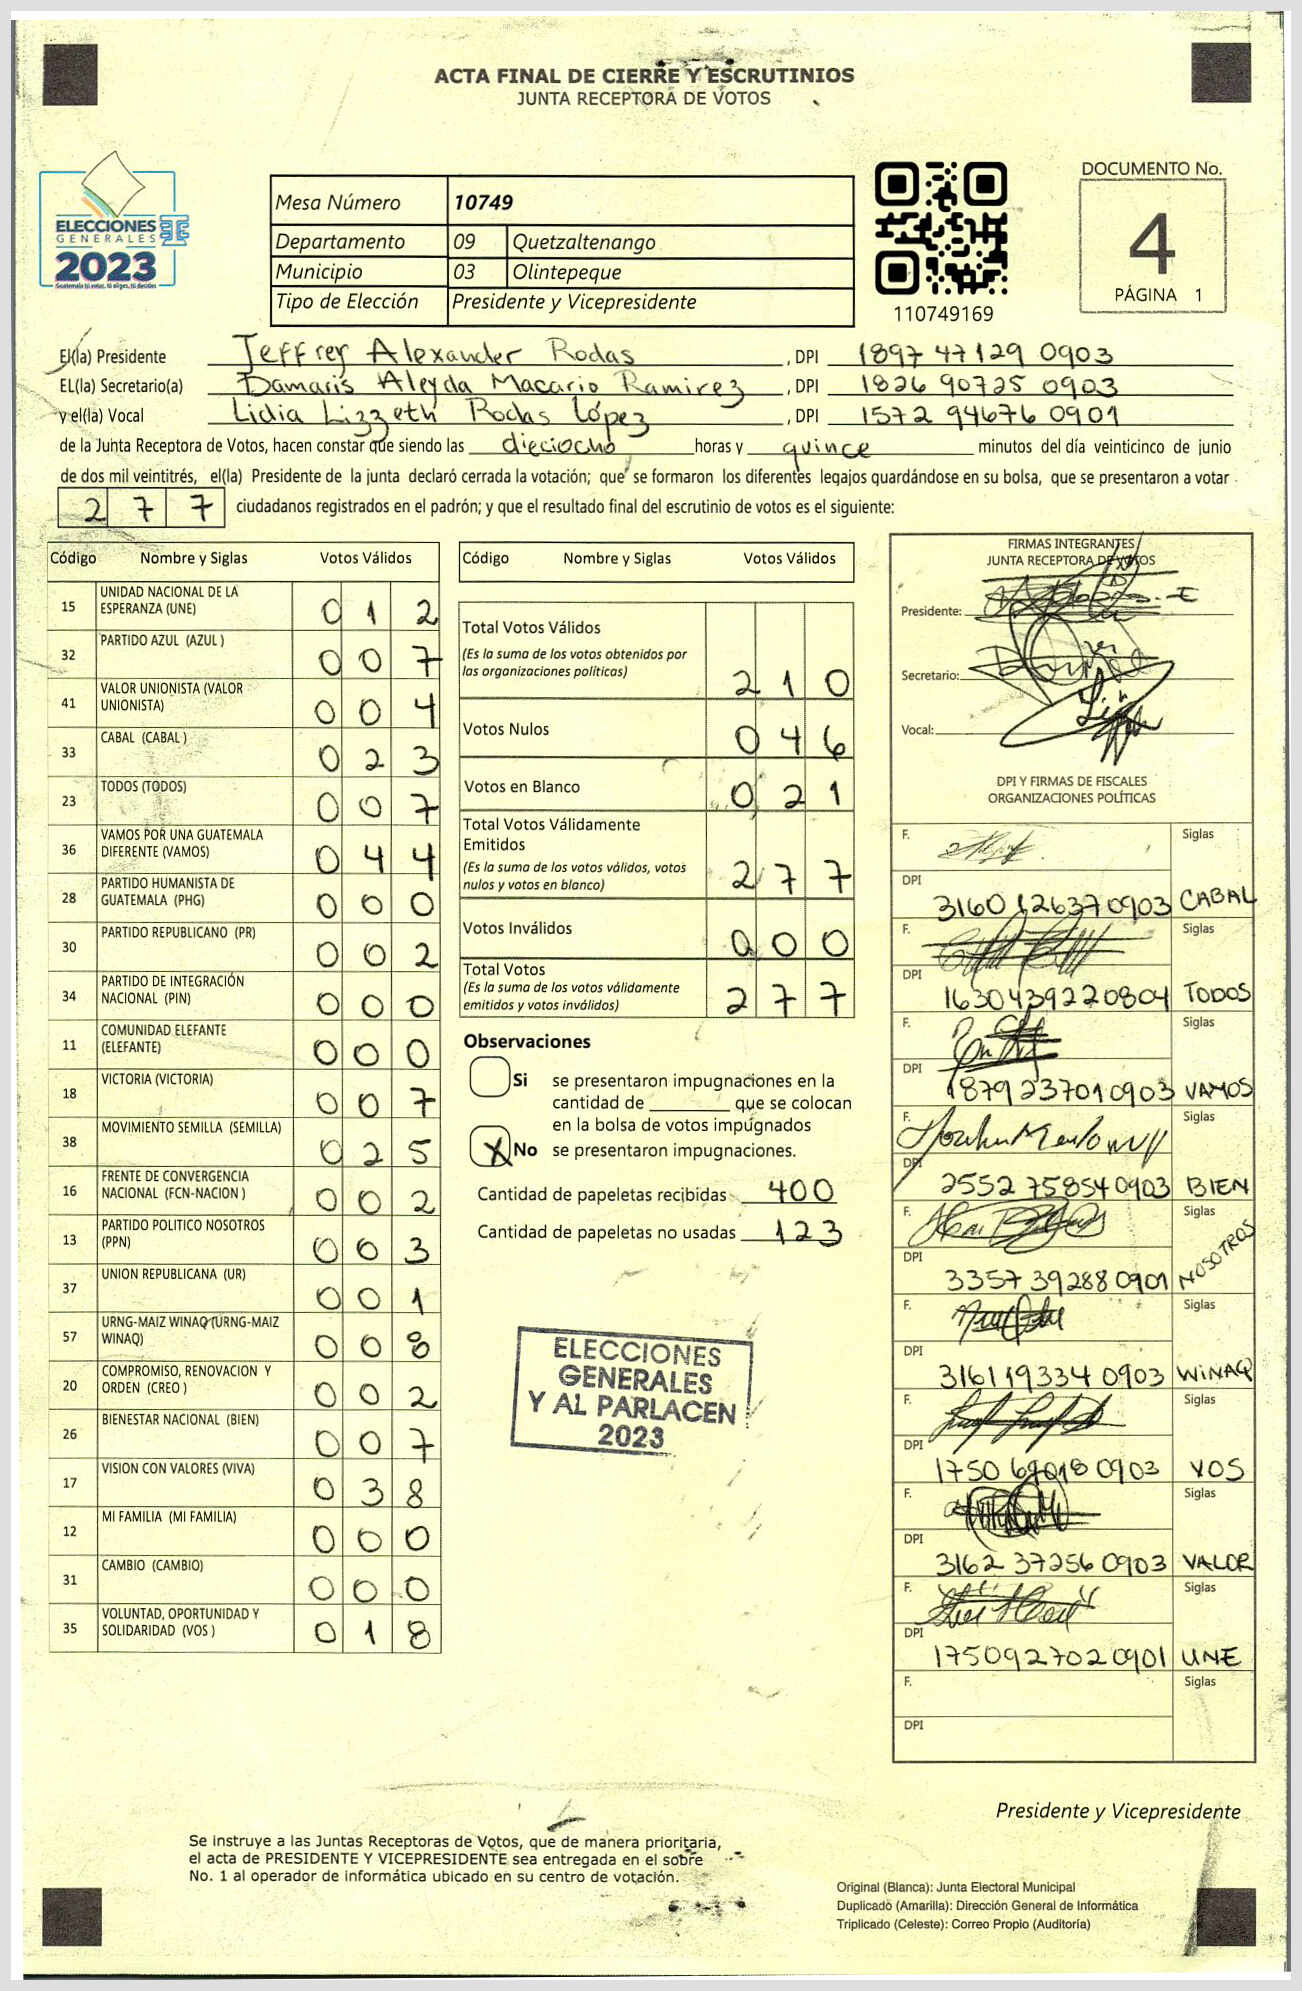 ACTA FINAL DE CIERRE Y ESCRUTINIOS
JUNTA RECEPTORA DE VOTOS
ELECCIONES
GENERALES
2023
Guatemala tú votas, tú eliges, tú decides
Mesa Número 10749
Departamento 09 Quetzaltenango
Municipio 03 Olintepeque
Tipo de Elección Presidente y Vicepresidente
110749169
DOCUMENTO No.
4
PÁGINA 1
El(la) Presidente Jeffrey Alexander Rodas, DPI 1897 47129 0903
EL(la) Secretario(a) Damaris Aleyda Macario Ramirez, DPI 1826 90725 0903
y el(la) Vocal Lidia Lizzeth Rodas López, DPI 1572 94676 0901
de la Junta Receptora de Votos, hacen constar que siendo las dieciocho horas y quince minutos del día veinticinco de junio
de dos mil veintitrés, el(la) Presidente de la junta declaró cerrada la votación; que se formaron los diferentes legajos guardándose en su bolsa, que se presentaron a votar
277 ciudadanos registrados en el padrón; y que el resultado final del escrutinio de votos es el siguiente:
Código Nombre y Siglas Votos Válidos
15 UNIDAD NACIONAL DE LA ESPERANZA (UNE) 012
32 PARTIDO AZUL (AZUL ) 007
41 VALOR UNIONISTA (VALOR UNIONISTA) 004
33 CABAL (CABAL ) 023
23 TODOS (TODOS) 007
36 VAMOS POR UNA GUATEMALA DIFERENTE (VAMOS) 044
28 PARTIDO HUMANISTA DE GUATEMALA (PHG) 000
30 PARTIDO REPUBLICANO (PR) 002
34 PARTIDO DE INTEGRACIÓN NACIONAL (PIN) 000
11 COMUNIDAD ELEFANTE (ELEFANTE) 000
18 VICTORIA (VICTORIA) 007
38 MOVIMIENTO SEMILLA (SEMILLA) 025
16 FRENTE DE CONVERGENCIA NACIONAL (FCN-NACION ) 002
13 PARTIDO POLITICO NOSOTROS (PPN) 003
37 UNION REPUBLICANA (UR) 001
57 URNG-MAIZ WINAQ (URNG-MAIZ WINAQ) 008
20 COMPROMISO, RENOVACION Y ORDEN (CREO ) 002
26 BIENESTAR NACIONAL (BIEN) 007
17 VISION CON VALORES (VIVA) 038
12 MI FAMILIA (MI FAMILIA) 000
31 CAMBIO (CAMBIO) 000
35 VOLUNTAD, OPORTUNIDAD Y SOLIDARIDAD (VOS ) 018
Código Nombre y Siglas Votos Válidos
Total Votos Válidos
(Es la suma de los votos obtenidos por
las organizaciones políticas) 210
Votos Nulos 046
Votos en Blanco 021
Total Votos Válidamente
Emitidos
(Es la suma de los votos válidos, votos
nulos y votos en blanco) 277
Votos Inválidos 000
Total Votos
(Es la suma de los votos válidamente
emitidos y votos inválidos) 277
Observaciones
Si se presentaron impugnaciones en la
cantidad de ________ que se colocan
en la bolsa de votos impugnados
X No se presentaron impugnaciones.
Cantidad de papeletas recibidas 400
Cantidad de papeletas no usadas 123
ELECCIONES
GENERALES
Y AL PARLACEN
2023
FIRMAS INTEGRANTES
JUNTA RECEPTORA DE VOTOS
Presidente:
Secretario:
Vocal:
DPI Y FIRMAS DE FISCALES
ORGANIZACIONES POLÍTICAS
F. Siglas
DPI 3160 126370903 CABAL
F. Siglas
DPI 1630439220804 TODOS
F. Siglas
DPI 1879237010903 VAMOS
F. Siglas
DPI 2552 758540903 BIEN
F. Siglas
DPI 3357 39288 0901 NOSOTROS
F. Siglas
DPI 3161 19334 0903 WINAQ
F. Siglas
DPI 1750 69018 0903 VOS
F. Siglas
DPI 3162 37256 0903 VALOR
F. Siglas
DPI 1750927020901 UNE
F. Siglas
DPI
Presidente y Vicepresidente
Se instruye a las Juntas Receptoras de Votos, que de manera prioritaria,
el acta de PRESIDENTE Y VICEPRESIDENTE sea entregada en el sobre
No. 1 al operador de informática ubicado en su centro de votación.
Original (Blanca): Junta Electoral Municipal
Duplicado (Amarilla): Dirección General de Informática
Triplicado (Celeste): Correo Propio (Auditoría)